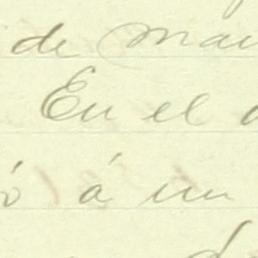 de mar
En el
ó á un